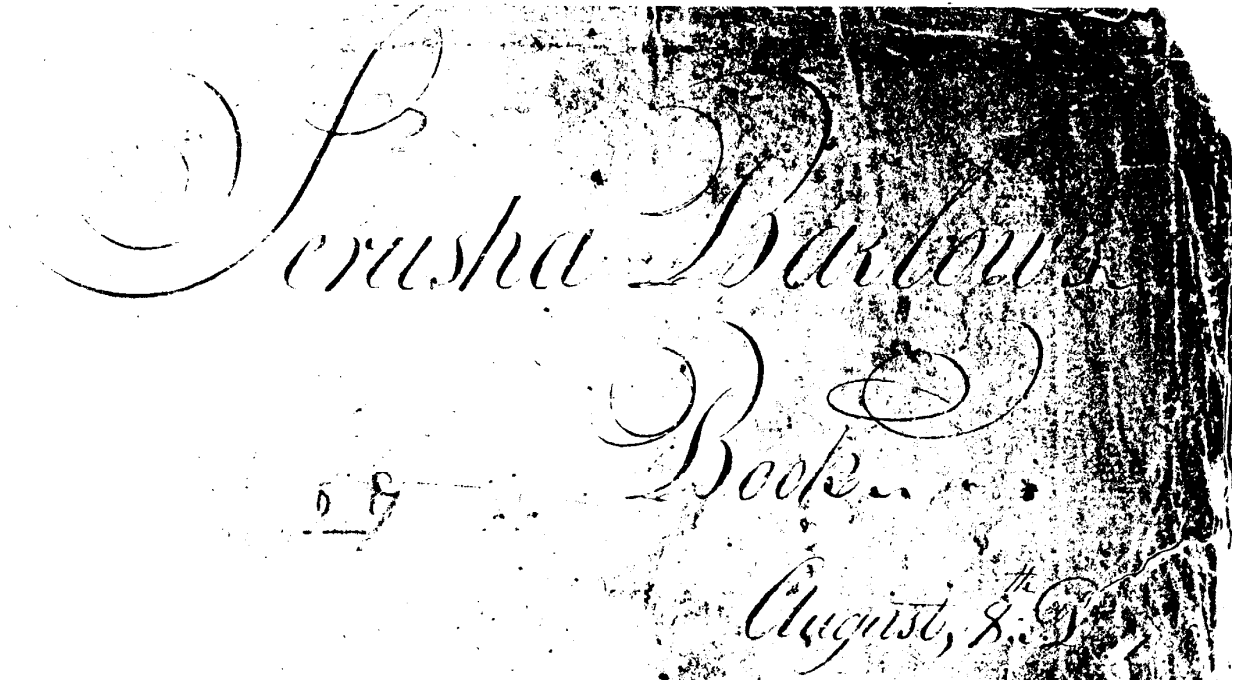 Jerusha Barlow's
Book
August, 8th